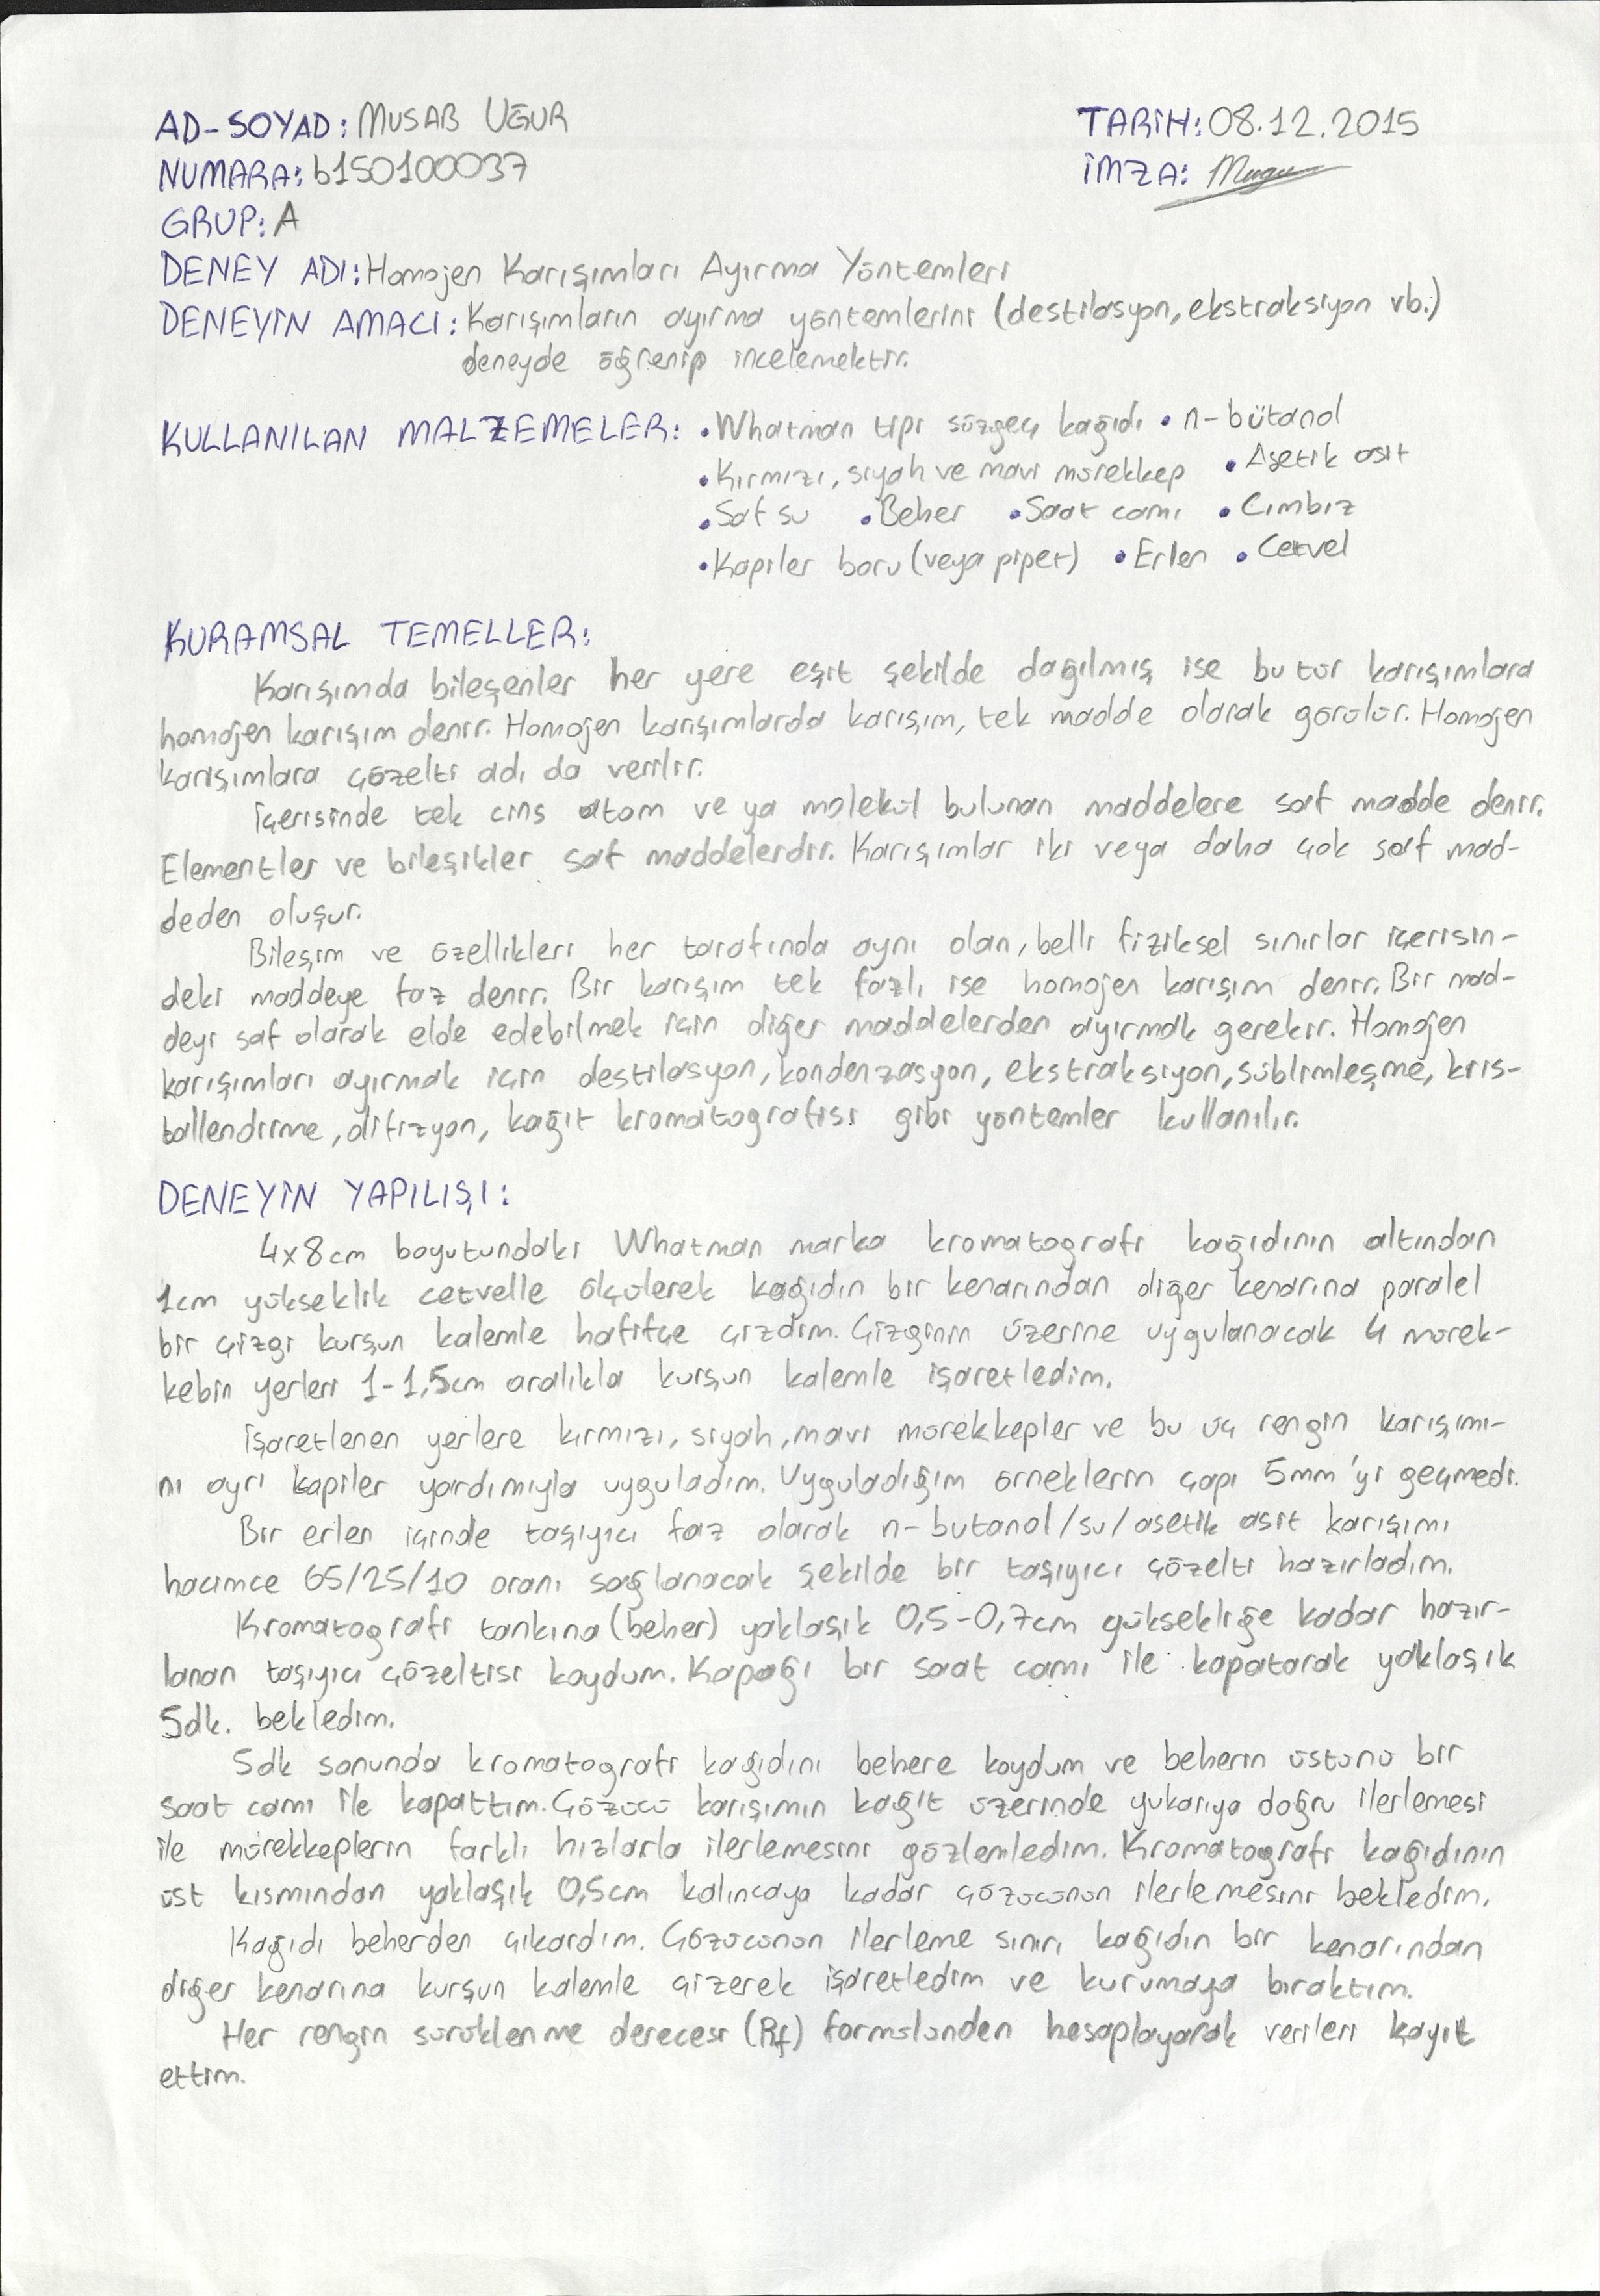 AD-SOYAD: MUSAB UĞUR
TARİH: 08.12.2015
NUMARA: b150100037
İMZA:
GRUP: A
DENEY ADI: Homojen Karışımları Ayırma Yöntemleri
DENEYİN AMACI: Karışımların ayırma yöntemlerini (destilasyon, ekstraksiyon vb.)
deneyde öğrenip incelemektir.
KULLANILAN MALZEMELER: •Whatman tipi süzgeç kağıdı •n-bütanol
•Kırmızı, siyah ve mavi mürekkep •Asetik asit
•Saf su •Beher •Saat camı •Cımbız
•Kapiler boru (veya pipet) •Erlen •Cetvel
KURAMSAL TEMELLER:
Karışımda bileşenler her yere eşit şekilde dağılmış ise bu tür karışımlara
homojen karışım denir. Homojen karışımlarda karışım, tek madde olarak görülür. Homojen
karışımlara çözelti adı da verilir.
İçerisinde tek cins atom ve ya molekül bulunan maddelere saf madde denir.
Elementler ve bileşikler saf maddelerdir. Karışımlar iki veya daha çok saf mad-
deden oluşur.
Bileşim ve özellikleri her tarafında aynı olan, belli fiziksel sınırlar içerisin-
deki maddeye faz denir. Bir karışım tek fazlı ise homojen karışım denir. Bir mad-
deyi saf olarak elde edebilmek için diğer maddelerden ayırmak gerekir. Homojen
karışımları ayırmak için destilasyon, kondenzasyon, ekstraksiyon, süblimleşme, kris-
tallendirme, difizyon, kağıt kromatografisi gibi yöntemler kullanılır.
DENEYİN YAPILIŞI:
4x8cm boyutundaki Whatman marka kromatografi kağıdının altından
1cm yükseklik cetvelle ölçülerek kağıdın bir kenarından diğer kenarına paralel
bir çizgi kurşun kalemle hafifçe çizdim. Çizginin üzerine uygulanacak 4 mürek-
kebin yerleri 1-1,5cm aralıkla kurşun kalemle işaretledim.
İşaretlenen yerlere kırmızı, siyah, mavi mürekkepler ve bu üç rengin karışımı-
nı ayrı kapiler yardımıyla uyguladım. Uyguladığım örneklerin çapı 5mm'yi geçmedi.
Bir erlen içinde taşıyıcı faz olarak n-butanol/su/asetik asit karışımı
hacimce 65/25/10 oranı sağlanacak şekilde bir taşıyıcı çözelti hazırladım.
Kromatografi tankına (beher) yaklaşık 0,5-0,7cm yüksekliğe kadar hazır-
lanan taşıyıcı çözeltisi koydum. Kapağı bir saat camı ile kapatarak yaklaşık
5dk. bekledim.
5dk sonunda kromatografi kağıdını behere koydum ve beherin üstünü bir
saat camı ile kapattım. Çözücü karışımın kağıt üzerinde yukarıya doğru ilerlemesi
ile mürekkeplerin farklı hızlarla ilerlemesini gözlemledim. Kromatografi kağıdının
üst kısmından yaklaşık 0,5cm kalıncaya kadar çözücünün ilerlemesini bekledim.
Kağıdı beherden çıkardım. Çözücünün ilerleme sınırı kağıdın bir kenarından
diğer kenarına kurşun kalemle çizerek işaretledim ve kurumaya bıraktım.
Her rengin sürüklenme derecesi (Rf) formülünden hesaplayarak verileri kayıt
ettim.